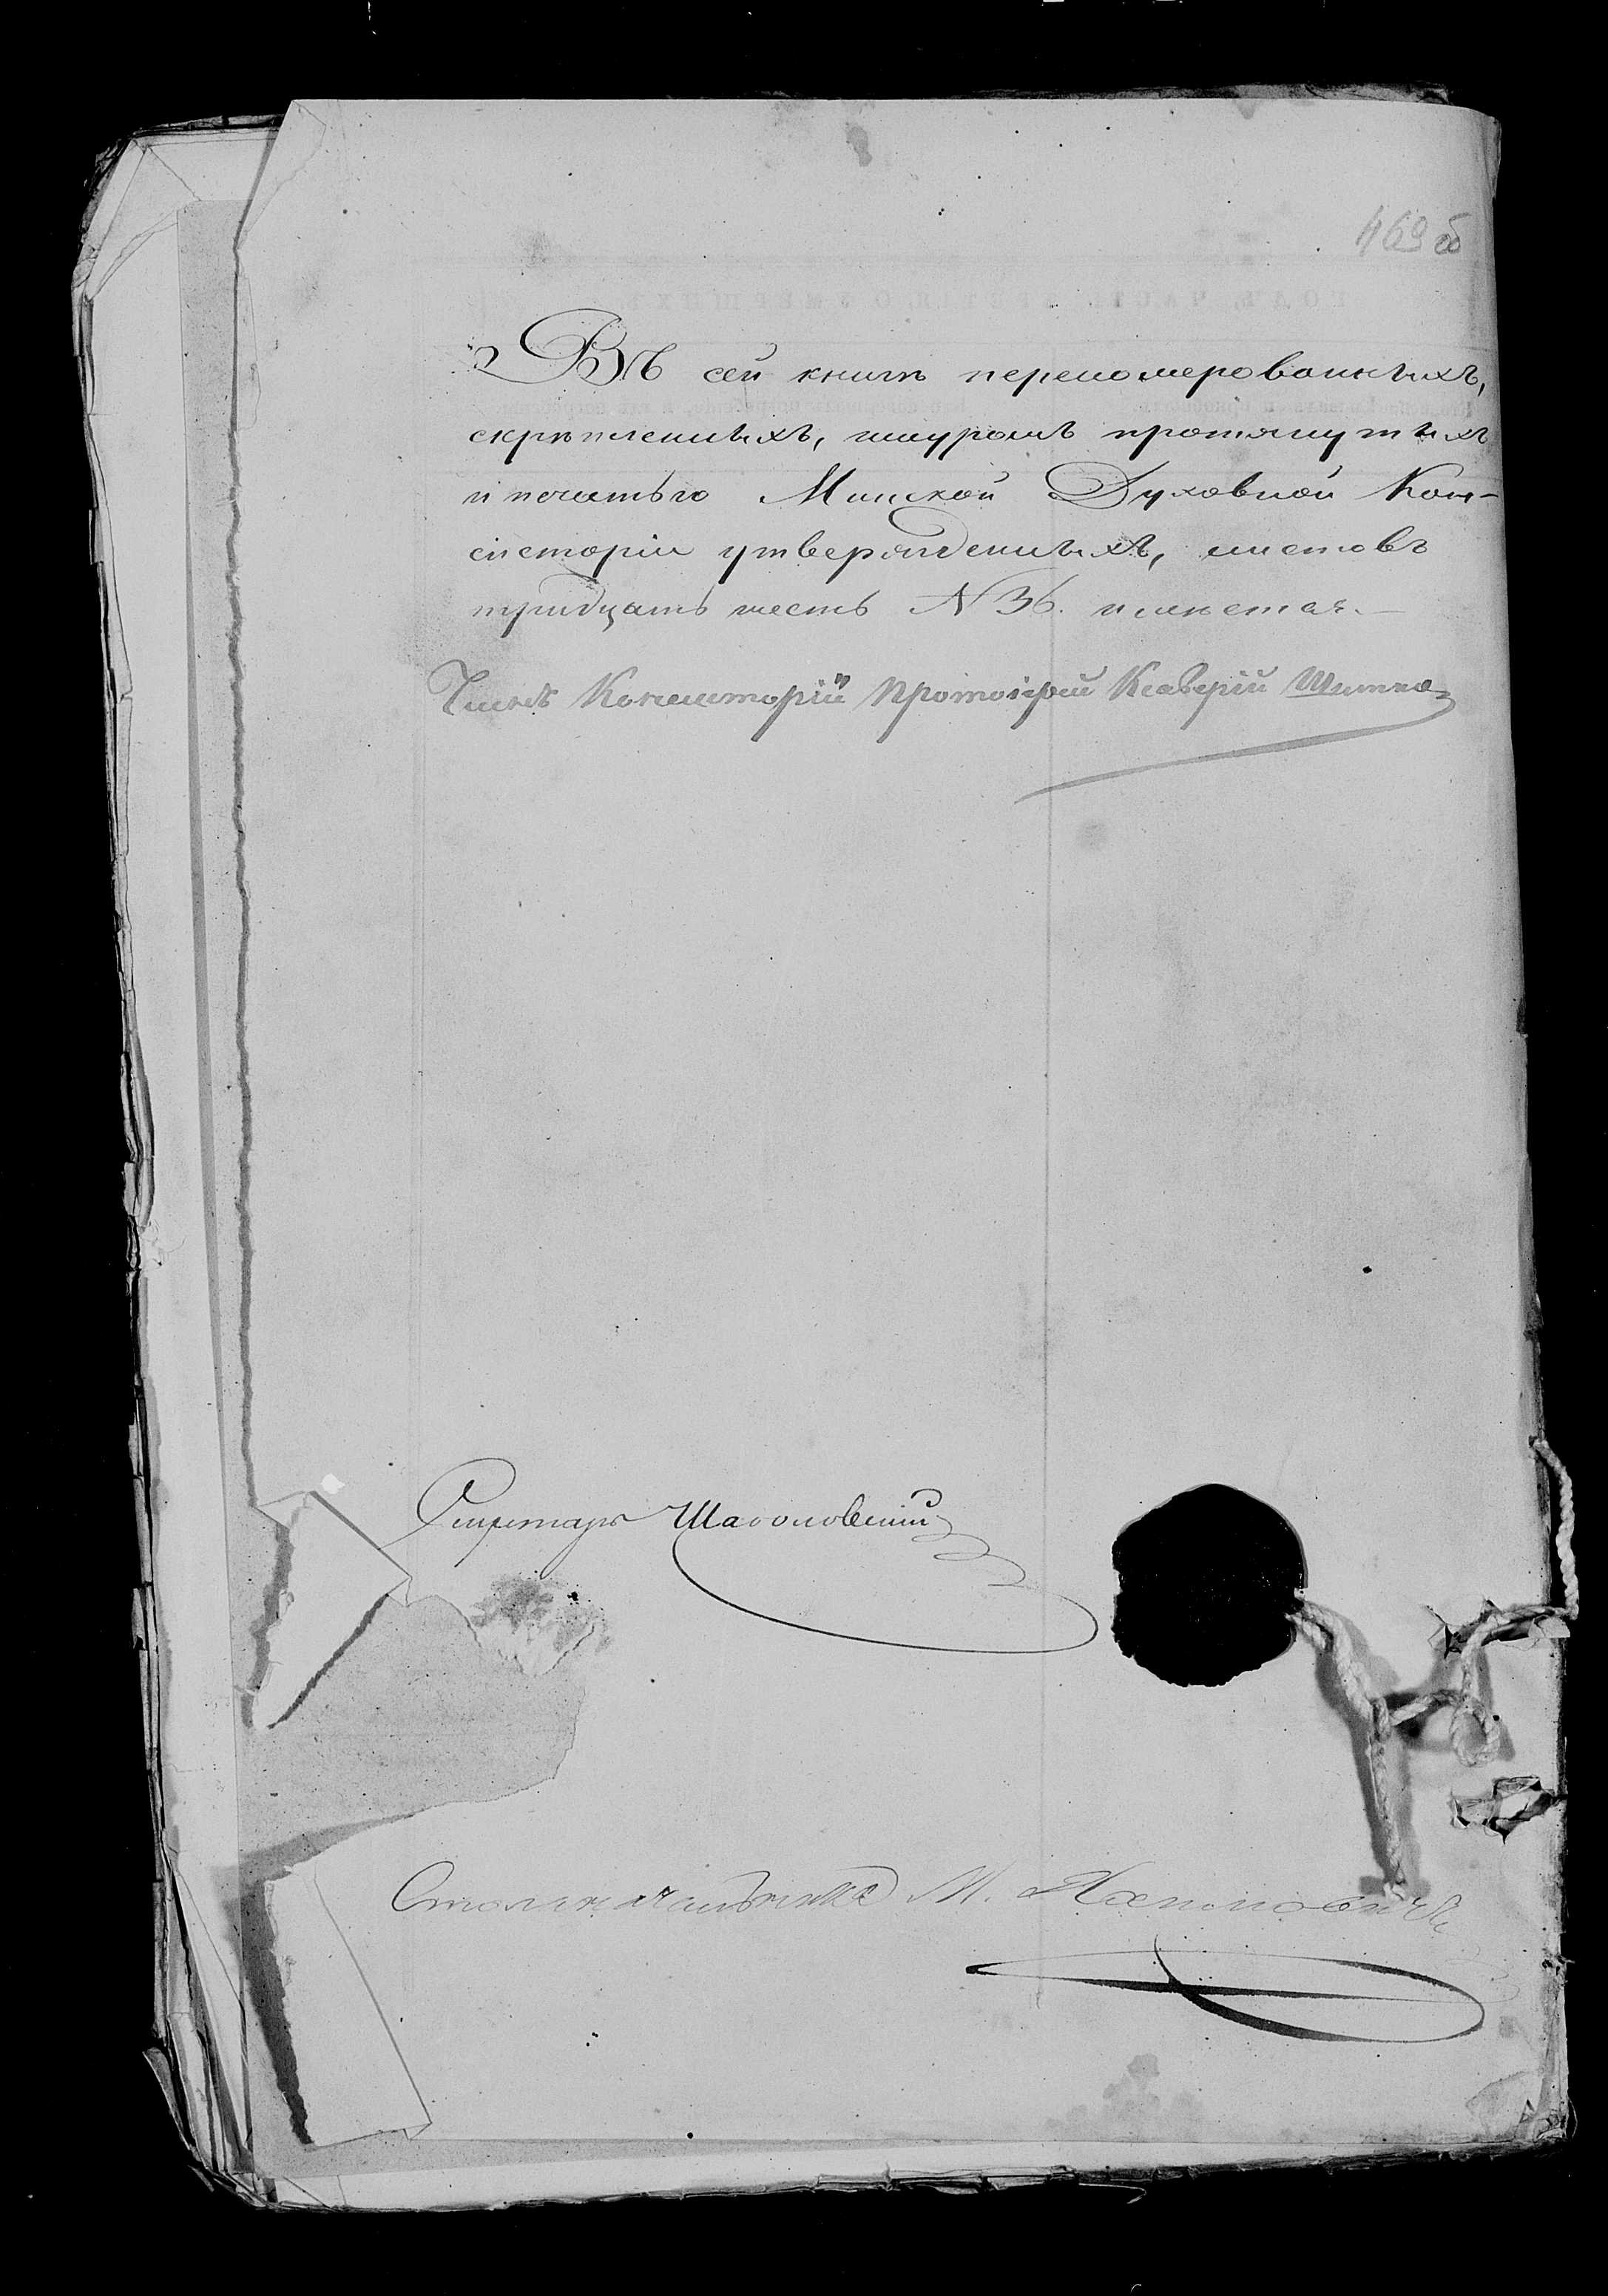 469 об
Въ сей книгѣ перепомерованныхъ,
скрѣпленныхъ, шнуромъ протянутыхъ
и печатью Минской Духовной Кон-
систоріи утвержденныхъ, листовъ
тридцать шесть N 36. имѣется.—
Членъ Консисторіи Протоіерей Ксаверій
Секретарь
Столоначальникъ М.